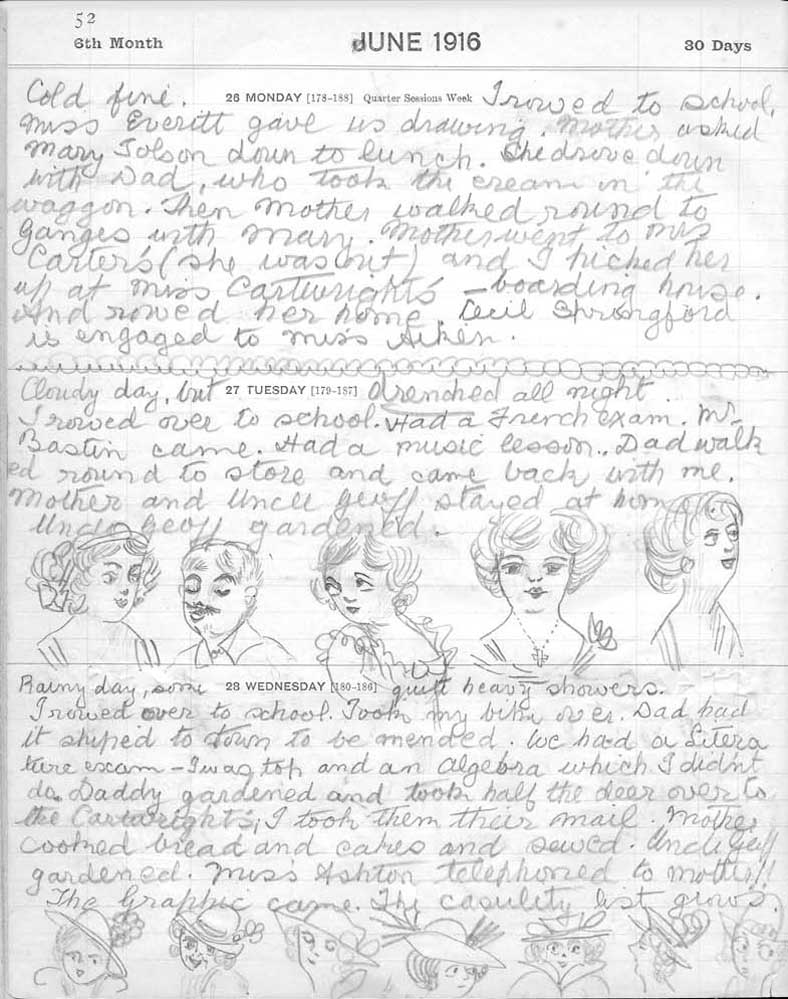 52
6th Month JUNE 1916 30 Days
Cold fine. 26 MONDAY [178-188] Quarter Sessions Week I rowed to school.
Miss Everitt gave us drawing. Mother asked
Mary Tolson down to lunch. She drove down
with Dad, who took the cream in the
waggon. Then Mother walked round to
Ganges with Mary. Mother went to Mrs
Carter's (she was out) and I picked her
up at Miss Cartwright's - boarding house.
And rowed her home. Cecil Springford
is engaged to Miss Aiken.
Cloudy day, but 27 TUESDAY [179-187] drenched all night.
I rowed over to school. Had a French exam. Mr.
Bastin came. Had a music lesson. Dad walk
ed round to store and came back with me.
Mother and Uncle Geoff stayed at home
Uncle Geoff gardened.
Rainy day, some 28 WEDNESDAY [180-186] quitt heavy showers.
I rowed over to school. Took my bike over. Dad had
it shiped to town to be mended. We had a Litera
ture exam - I was top and an algebra which I didn't
do. Daddy gardened and took half the deer over to
the Cartwright's; I took them their mail. Mother
cooked bread and cakes and sewed. Uncle Geoff
gardened. Miss Ashton telephoned to mother!!
The Graphic came. The casulity list grows.